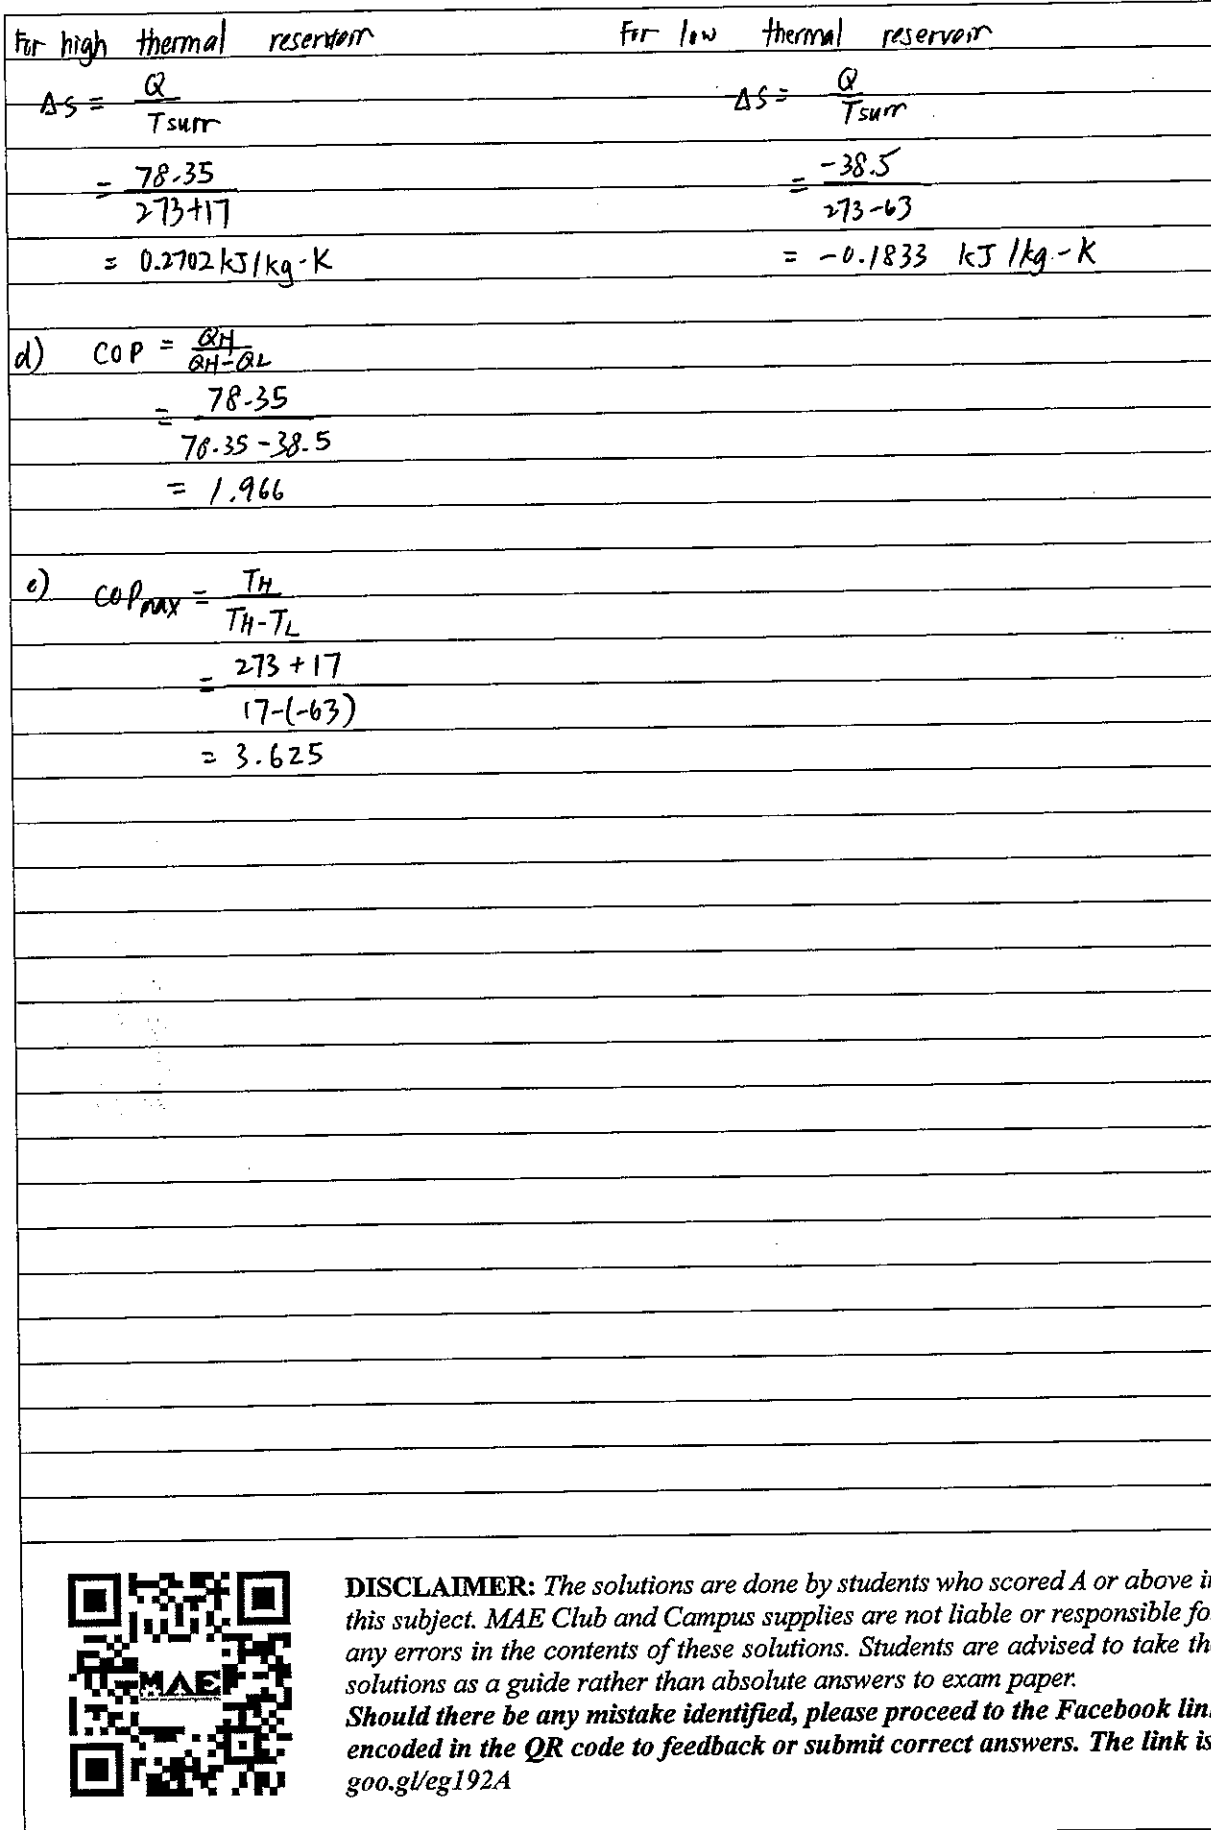 For high thermal reservoir
For low thermal reservoir
ΔS = Q / Tsurr
ΔS = Q / Tsurr
= 78.35 / 273+17
= -38.5 / 273-63
= 0.2702 kJ/kg-K
= -0.1833 kJ/kg-K
d) COP = QH / QH-QL
= 78.35 / 78.35-38.5
= 1.966
e) COPmax = TH / TH-TL
= 273+17 / 17-(-63)
= 3.625
MAE
DISCLAIMER: The solutions are done by students who scored A or above i
this subject. MAE Club and Campus supplies are not liable or responsible fo
any errors in the contents of these solutions. Students are advised to take th
solutions as a guide rather than absolute answers to exam paper.
Should there be any mistake identified, please proceed to the Facebook lin
encoded in the QR code to feedback or submit correct answers. The link is
goo.gl/eg192A